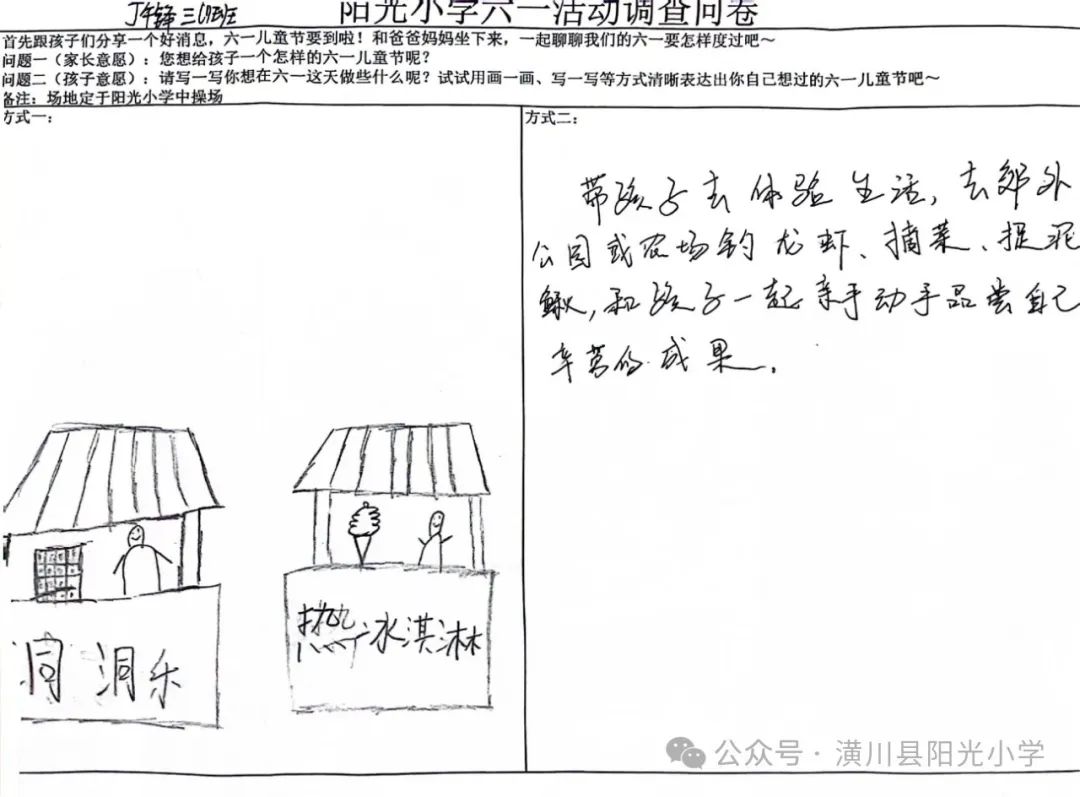 三(1)班
阳光小学六一活动调查问卷
首先跟孩子们分享一个好消息，六一儿童节要到啦！和爸爸妈妈坐下来，一起聊聊我们的六一要怎样度过吧～
问题一（家长意愿）：您想给孩子一个怎样的六一儿童节呢？
问题二（孩子意愿）：请写一写你想在六一这天做些什么呢？试试用画一画、写一写等方式清晰表达出你自己想过的六一儿童节吧～
备注：场地定于阳光小学中操场
方式一：
洞洞乐
热冰淇淋
方式二：
带孩子去体验生活，去郊外
公园或农场钓龙虾、摘菜、捉泥
鳅，和孩子一起亲手动手品尝自己
辛劳的成果。
公众号·潢川县阳光小学